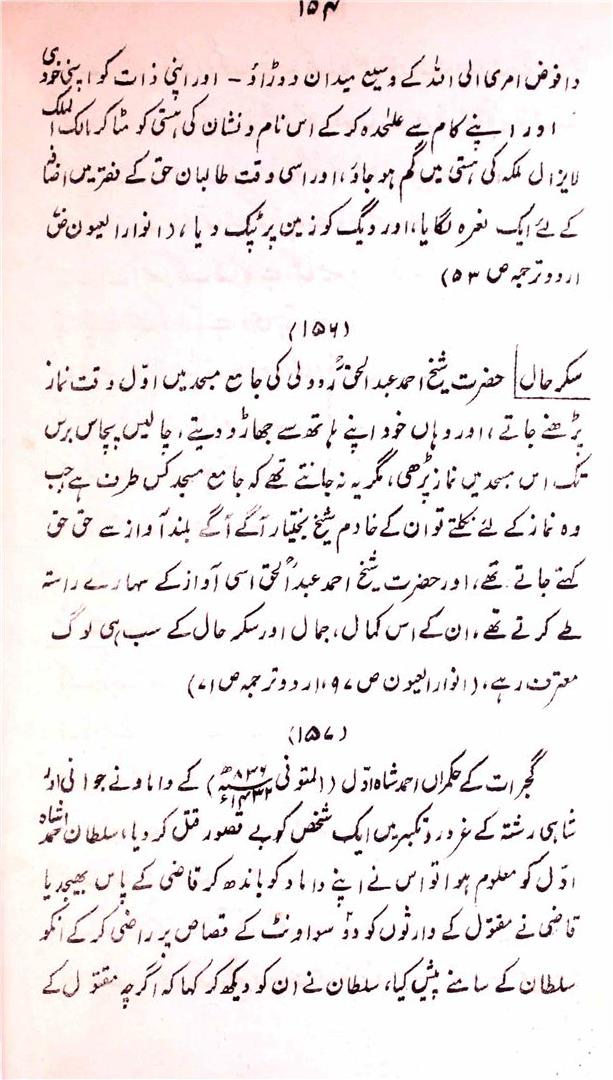 ۱۵۴
وافوض امری الی اللہ کے وسیع میدان دوڑاؤ - اور اپنی ذات کو اپنی خودی
اور اپنے کام سے علٰحدہ کرکے اس نام و نشان کی ہستی کو مٹا کر مالک الملک
لایزال ملکہ کی ہستی میں گم ہو جاؤ، اور اسی وقت طالبان حق کے فقر میں اضافے
کے لئے ایک نعرہ لگایا، اور دیگ کو زمین پر ٹپک دیا، (انوار العیون ص
اردو ترجمہ ص ۵۳)
(۱۵۶)
سکر حال حضرت شیخ احمد عبد الحقؒ ردولی کی جامع مسجد میں اوّل وقت نماز
پڑھنے جاتے، اور وہاں خود اپنے ہاتھ سے جھاڑو دیتے، چالیس پچاس برس
تک اس مسجد میں نماز پڑھی، مگر یہ نہ جانتے تھے کہ جامع مسجد کس طرف ہے جب
وہ نماز کے لئے نکلتے تو ان کے خادم شیخ بختیار آگے آگے بلند آواز سے حق حق
کہتے جاتے تھے، اور حضرت شیخ احمد عبد الحقؒ اسی آواز کے سہارے راستہ
طے کرتے تھے، ان کے اس کمال، جمال اور سکر حال کے سب ہی لوگ
معترف رہے، (انوار العیون ص ۹۷، اردو ترجمہ ص ۷۱)
(۱۵۷)
گجرات کے حکمراں احمد شاہ اوّل (المتوفی ۸۳۶ھ ۱۴۳۲ء) کے داماد نے جوانی اور
شاہی رشتہ کے غرور و تکبر میں ایک شخص کو بے قصور قتل کر دیا، سلطان احمد شاہ
اوّل کو معلوم ہوا تو اس نے اپنے داماد کو باندھ کر قاضی کے پاس بھیجدیا
قاضی نے مقتول کے وارثوں کو دو سو اونٹ کے قصاص پر راضی کر کے انکو
سلطان کے سامنے پیش کیا، سلطان نے ان کو دیکھ کر کہا کہ اگرچہ مقتول کے